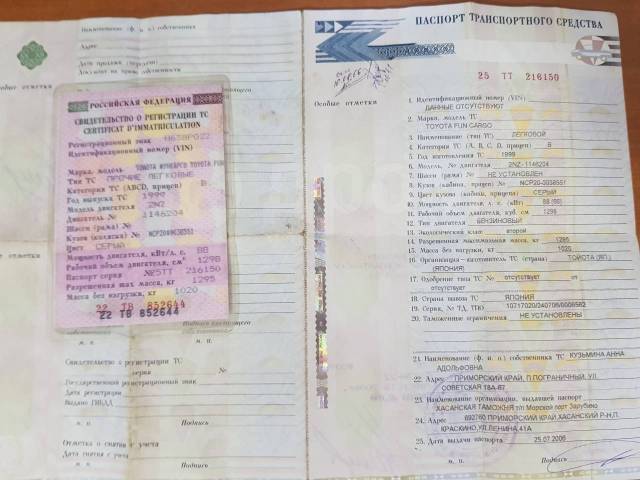 Наименование (ф. и. о.) собственника
Адрес
Дата продажи (передачи)
Документ на право собственности
Особые отметки
РОССИЙСКАЯ ФЕДЕРАЦИЯ
СВИДЕТЕЛЬСТВО О РЕГИСТРАЦИИ ТС
CERTIFICAT D'IMMATRICULATION
Регистрационный знак
Идентификационный номер (VIN)
Марка, модель
Тип ТС ПРОЧИЕ ЛЕГКОВЫЕ
Категория ТС (ABCD, прицеп) B
Год выпуска ТС 1999
Модель двигателя 2NZ
Двигатель № 1146204
Шасси (рама) №
Кузов (коляска) № NCP200038551
Цвет СЕРЫЙ
Мощность двигателя, кВт/л. с. 88
Рабочий объем двигателя, см³ 1298
Паспорт серия №25ТТ 216150
Разрешенная max масса, кг 1295
Масса без нагрузки, кг 1020
22 ТВ 852644
22 ТВ 852644
м. п.
Свидетельство о регистрации ТС
серия №
Государственный регистрационный знак
Дата регистрации
Выдано ГИБДД
м. п. Подпись
Отметка о снятии с учета
Дата снятия с учета
м. п. Подпись
ПАСПОРТ ТРАНСПОРТНОГО СРЕДСТВА
25 ТТ 216150
Особые отметки
1. Идентификационный номер (VIN)
ДАННЫЕ ОТСУТСТВУЮТ
2. Марка, модель ТС
TOYOTA FUN CARGO
3. Наименование (тип ТС) ЛЕГКОВОЙ
4. Категория ТС (А, В, С, D, прицеп) В
5. Год изготовления ТС 1999
6. Модель, № двигателя 2NZ-1146204
7. Шасси (рама) № НЕ УСТАНОВЛЕН
8. Кузов (кабина, прицеп) № NCP20-0038551
9. Цвет кузова (кабины, прицепа) СЕРЫЙ
10. Мощность двигателя, л. с. (кВт) 88 (65)
11. Рабочий объем двигателя, куб. см 1298
12. Тип двигателя БЕНЗИНОВЫЙ
13. Экологический класс второй
14. Разрешенная максимальная масса, кг 1295
15. Масса без нагрузки, кг 1020
16. Организация-изготовитель ТС (страна) TOYOTA (ЯП.)
(ЯПОНИЯ)
17. Одобрение типа ТС № отсутствует от
отсутствует
18. Страна вывоза ТС ЯПОНИЯ
19. Серия, № ТД, ТПО 10717020/240706/0006562
20. Таможенные ограничения НЕ УСТАНОВЛЕНЫ
21. Наименование (ф. и. о.) собственника ТС КУЗЬМИНА АННА
АДОЛЬФОВНА
22. Адрес ПРИМОРСКИЙ КРАЙ, П.ПОГРАНИЧНЫЙ, УЛ.
СОВЕТСКАЯ 18А-67
23. Наименование организации, выдавшей паспорт
ХАСАНСКАЯ ТАМОЖНЯ т/п Морской порт Зарубино
24. Адрес 692760 ПРИМОРСКИЙ КРАЙ,ХАСАНСКИЙ Р-Н,П.
КРАСКИНО,УЛ.ЛЕНИНА,41А
25. Дата выдачи паспорта 25.07.2006
м. п. Подпись